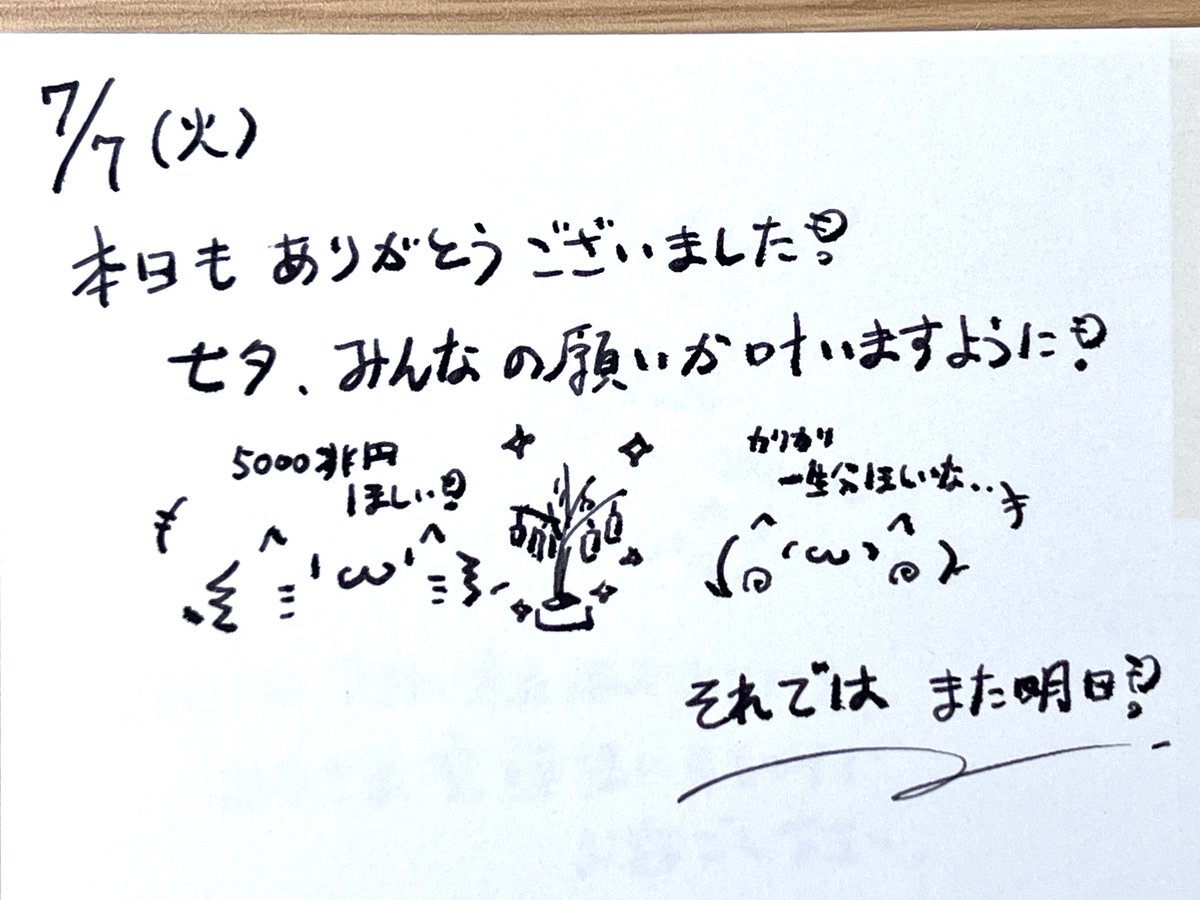 7/7(火)
本日もありがとうございました!
七夕、みんなの願いが叶いますように!
5000兆円
ほしい!
かりかり
一生分ほしいな..
それでは また明日!